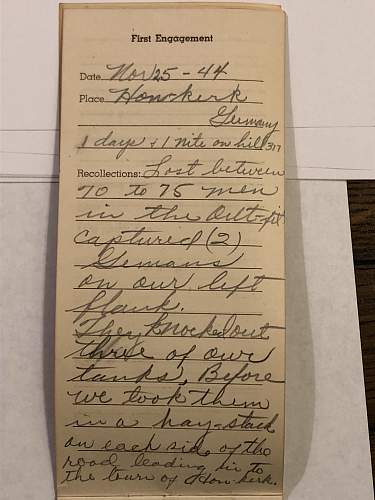 First Engagement
Date Nov 25 - 44
Place Hon-kerk
Germany
1 days & 1 nite on hill 317
Recollections: Lost between
70 to 75 men
in the Out-fit
Captured (2)
Germans
on our left
flank.
They knocked out
three of our
tanks, Before
we took them
in a hay-stack
on each side of the
road leading in to
the town of Hon-kerk.